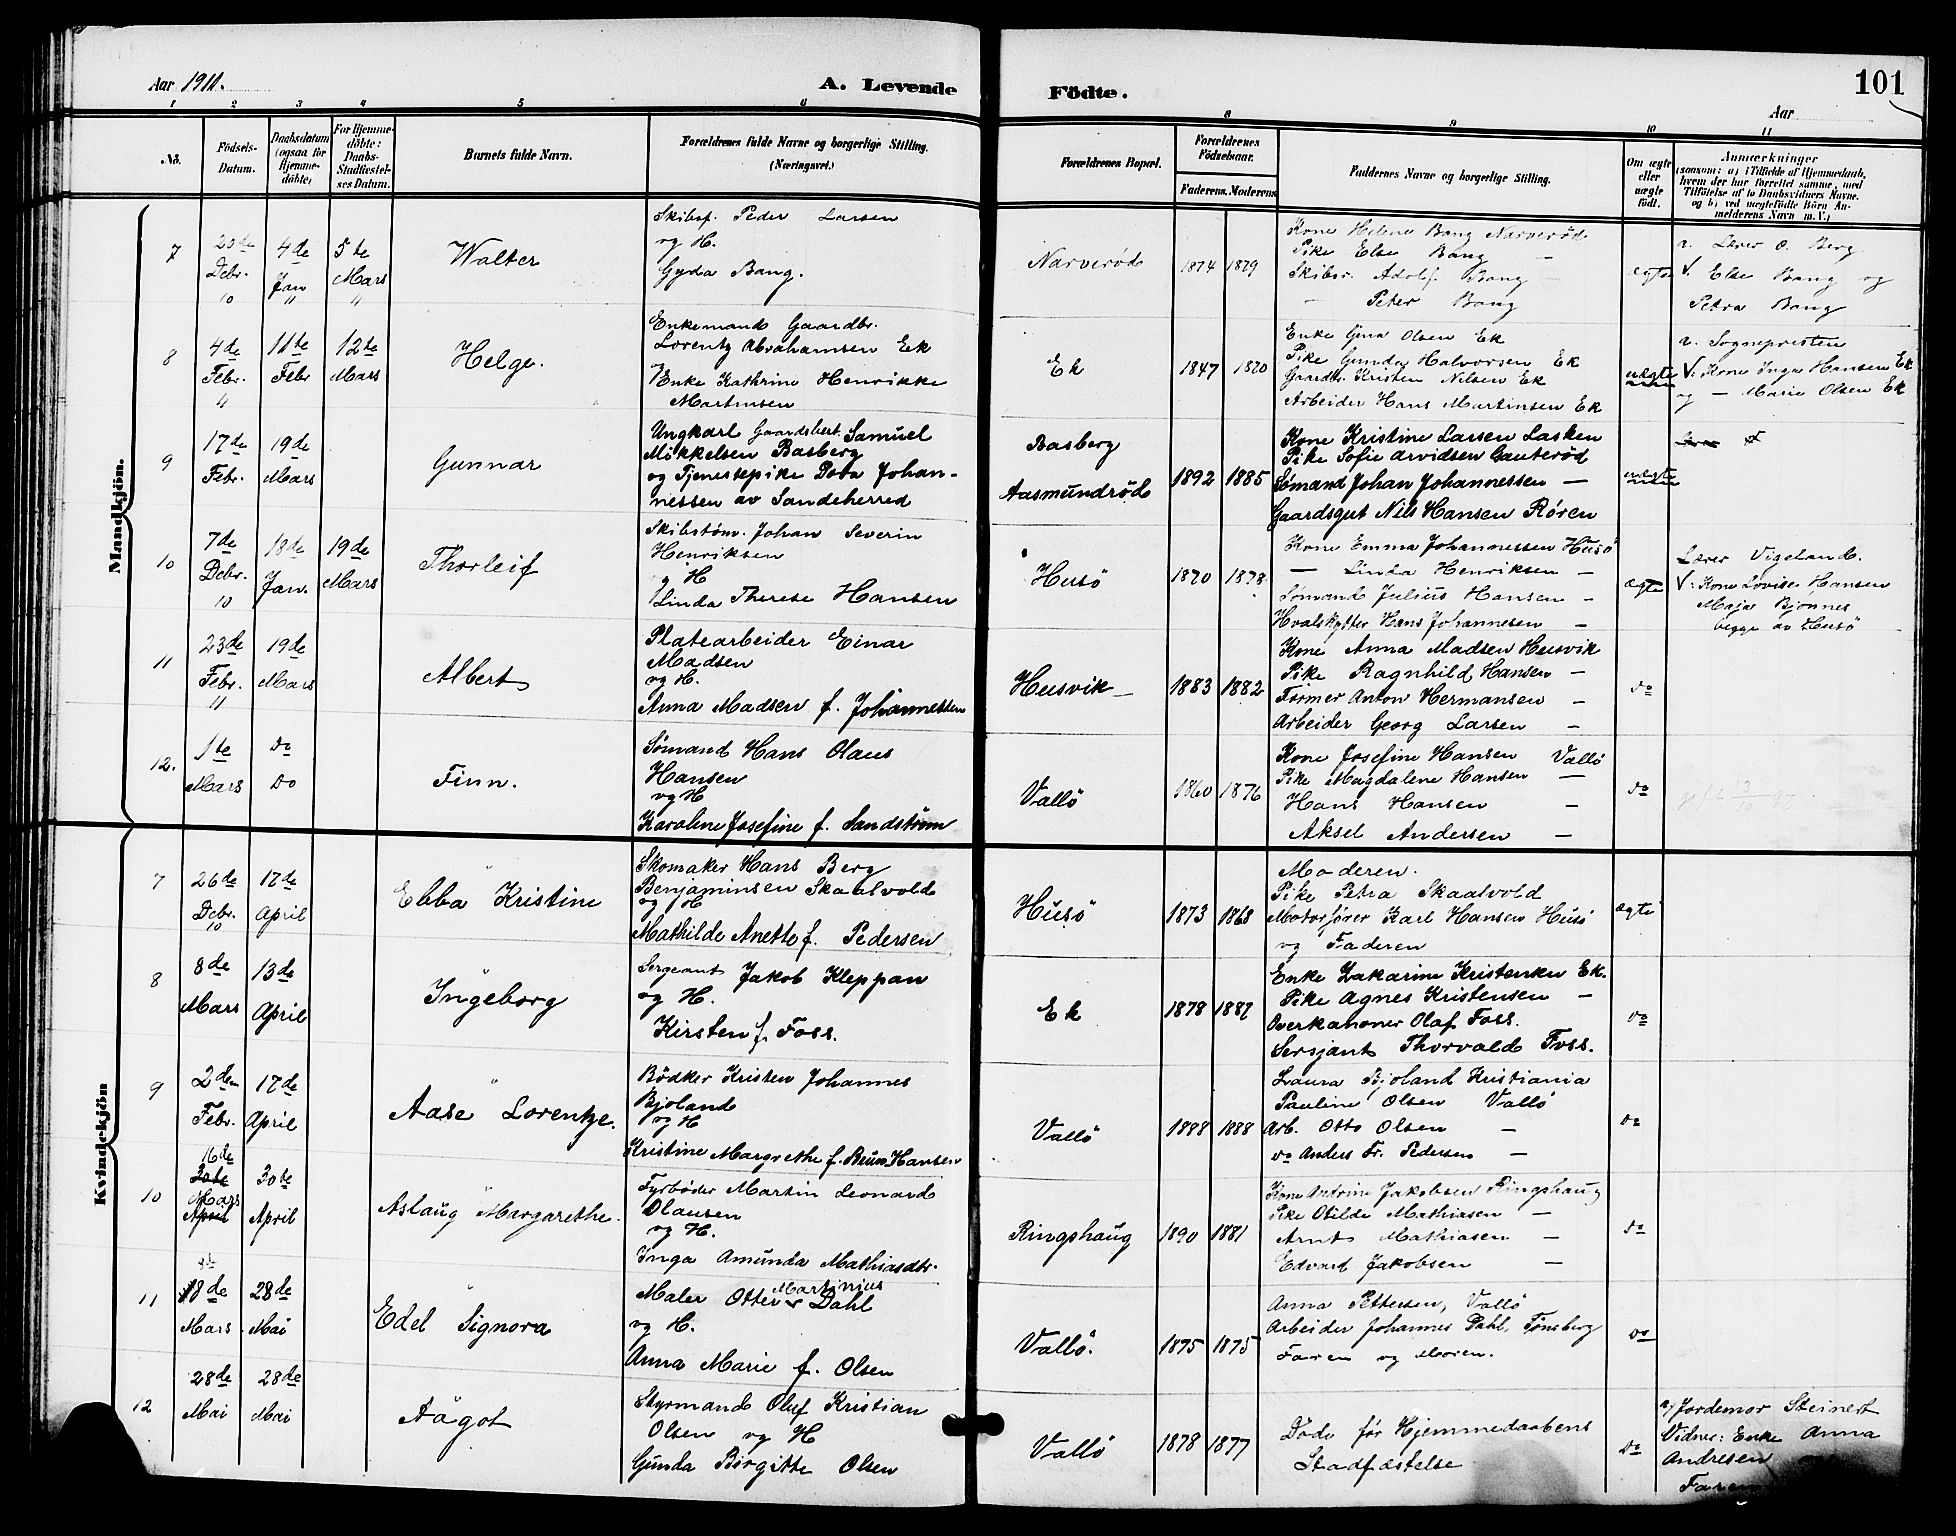 Aar 1911.
A. Levende
Födte.
101
Aar
1 2 3 4 5 6
8 9 10 11
No.
Födsels-Datum.
Daabsdatum (ogsaa for Hjemme-döbte)
For Hjemme-döbte: Daabs-Stadfæstel-ses Datum.
Barnets fulde Navn.
Forældrenes fulde Navne og borgerlige Stilling.
(Næringsvei.)
Forældrenes Bopæl.
Forældrenes Födselsaar.
Faderens. Moderens.
Faddernes Navne og borgerlige Stilling.
Om ægte eller uægte födt.
Anmærkninger
(saasom: a) i Tilfælde af Hjemmedaab, hvem der har forrettet samme, med Tilföielse af to Daabsvidners Navne, og b) ved uægtefödte Börn An-melderens Navn m. V.)
Mandkjön.
7
20de Debr. 10
4de Jan 11
5te Mars 11
Walter
Skibsf. Peder Larsen
og H.
Gyda Bang.
Narverød
1874 1879
Kone Helene Bang Narverød
Pike Else Bang —
Skibsr. Adolf Bang —
— Peter Bang
ægte
a. Lærer O. Berg
V. Else Bang og
Petra Bang
8
4de Febr. 11
11te Febr
12te Mars
Helge.
Enkemand Gaardbr.
Lorentz Abrahamsen Ek
Enke Kathrine Henrikke
Martinsen
Ek
1847 1870
Enke Gina Olsen Ek
Pike Gunda Halvorsen Ek
Gaardbr. Kristen Nilsen Ek
Arbeider Hans Martinsen Ek
uægte
a. Sognepresten
V: Kone Inga Hansen Ek
og — Marie Olsen Ek
9
17de Febr.
19de Mars
Gunnar
Ungkarl Gaardsbest. Samuel
Mikkelsen Basberg
og Tjenestepike Dora Johan-
nessen av Sandeherred
Basberg
Aasmundrød
1892 1885
Kone Kristine Larsen Lasken
Pike Sofie Arvidsen Gauterød
Sømand Johan Johannessen —
Gaardsgut Nils Hansen Røren
uægte
10
7de Debr. 10
18de Jan.
19de Mars
Thorleif
Skibstøm. Johan Severin
Henriksen
og H
Linda Therese Hansen
Husö
1870 1878
Kone Emma Johannessen Husö
— Linda Henriksen —
Sømand Julius Hansen —
Hvalskytter Hans Johannesen —
ægte
Lærer Vigeland.
V: Kone Lovise Hansen
Maja Bjønnes
begge av Husö
11
23de Febr. 11
19de Mars
Albert
Platearbeider Einar
Madsen
og H.
Anna Madsen f. Johannessen
Husvik
1883 1882
Kone Anna Madsen Husvik
Pike Ragnhild Hansen —
Former Anton Hermansen —
Arbeider Georg Larsen —
do
12.
1te Mars
do do
Finn.
Sømand Hans Olaus
Hansen
og H
Karoline Josefine f. Sandstrøm
Vallö
1860 1876
Kone Josefine Hansen Vallö
Pike Magdalene Hansen —
Hans Hansen —
Aksel Andersen —
do
Kvindekjön
7
26de Debr. 10
17de April
Ebba Kristine
Skomaker Hans Berg
Benjaminsen Skaalvold
og H
Mathilde Anette f. Pedersen
Husö
1873 1868
Moderen.
Pike Petra Skaalvold
Motorfører Karl Hansen Husö
og Faderen
ægte
8
8de Mars
13de April
Ingeborg
Sergeant Jakob Kleppan
og H.
Kirsten f. Foss.
Ek
1878 1887
Enke Zakarine Kristensen Ek.
Pike Agnes Kristensen —
Overkanoner Olaf Foss.
Sersjant Thorvald Foss.
do
9
2den Febr.
17de April
Aase Lorentze.
Bödker Kristen Johannes
Bjoland
og H
Kristine Margrethe f. Bruun Hansen
Vallö
1888 1888
Laura Bjoland Kristiania
Pauline Olsen Vallö
Arb. Otto Olsen —
do Anders Fr. Pedersen —
do
10
16de
30te
Mars
April
30te April
Aslaug Margarethe.
Fyrbøder Martin Leonard
Olausen
og H.
Inga Amunda Mathiasdtr.
Ringshaug
1890 1881
Kone Andrine Jakobsen Ringshaug
Pike Otilde Mathiasen —
Arnt Mathiasen —
Edvard Jakobsen —
do
11
18de Mars
28de Mai
Edel Signora
Maler Otter Martinius Dahl
og H.
Anna Marie f. Olsen
Vallö.
1875 1875
Anna Pettersen, Vallö
Arbeider Johannes Dahl, Tønsberg
Faren og Moren.
do
12
28de Mai
28de Mai
Aagot
Styrmand Oluf Kristian
Olsen og H
Gunda Birgitte Olsen
Vallö
1878 1877
Døde før Hjemmedaabens
Stadfæstelse
do
a/ Jordemor Steinert
Vidne: Enke Anna
Andresen
Faren